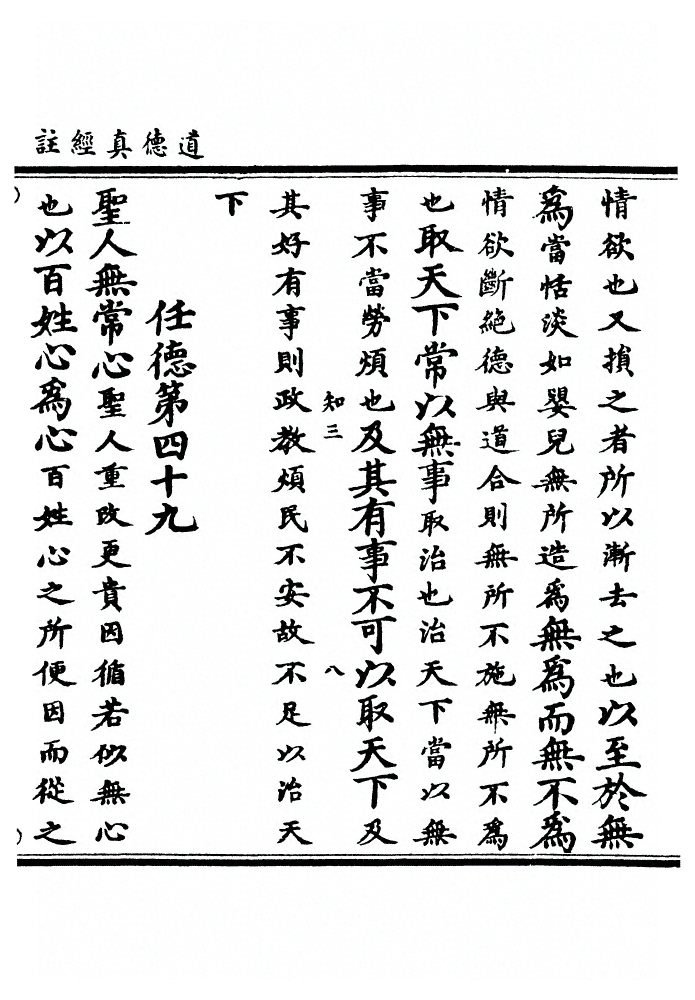 道德真經註
情欲也又損之者所以漸去之也以至於無
爲當恬淡如嬰兒無所造爲無爲而無不爲
情欲斷絕德與道合則無所不施無所不爲
也取天下常以無事取治也治天下當以無
事不當勞煩也及其有事不可以取天下及
知三
八
其好有事則政教煩民不安故不足以治天
下
任德第四十九
聖人無常心聖人重改更貴因循若似無心
也以百姓心爲心百姓心之所便因而從之